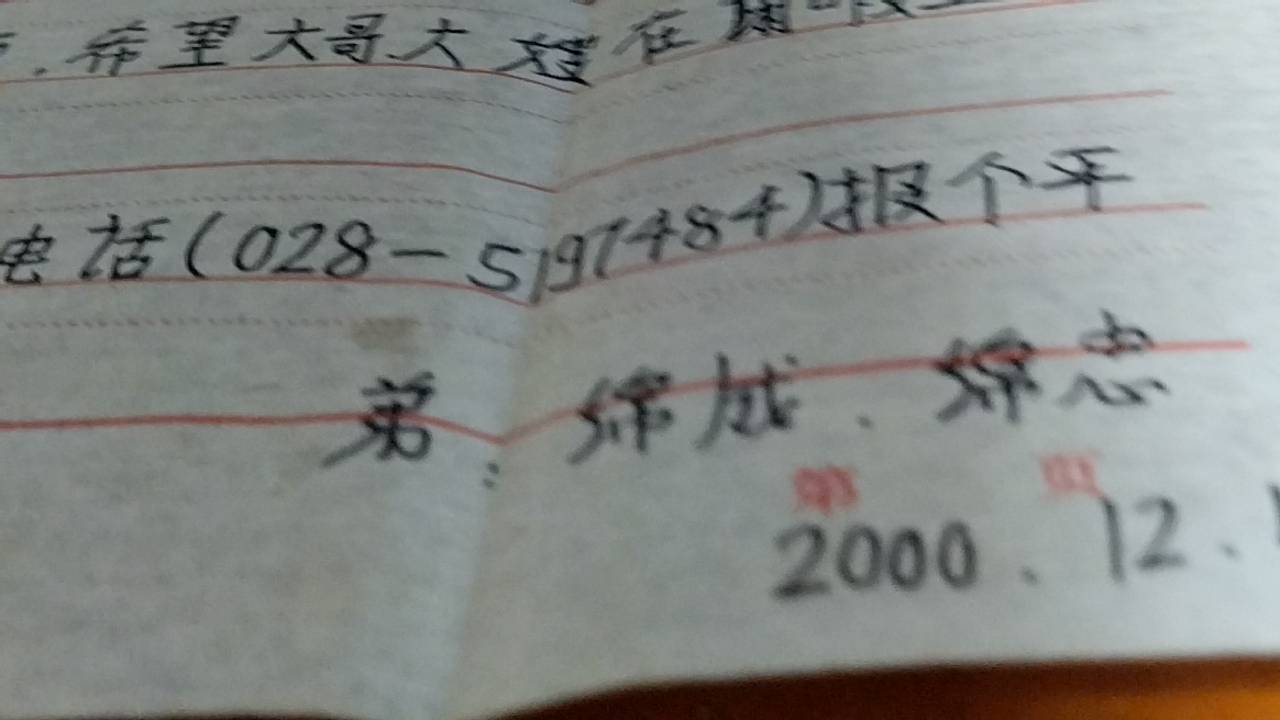 .希望大哥.大嫂在
电话(028-5197484)报个平
弟:绵成.绵忠
第 页
2000、12、1